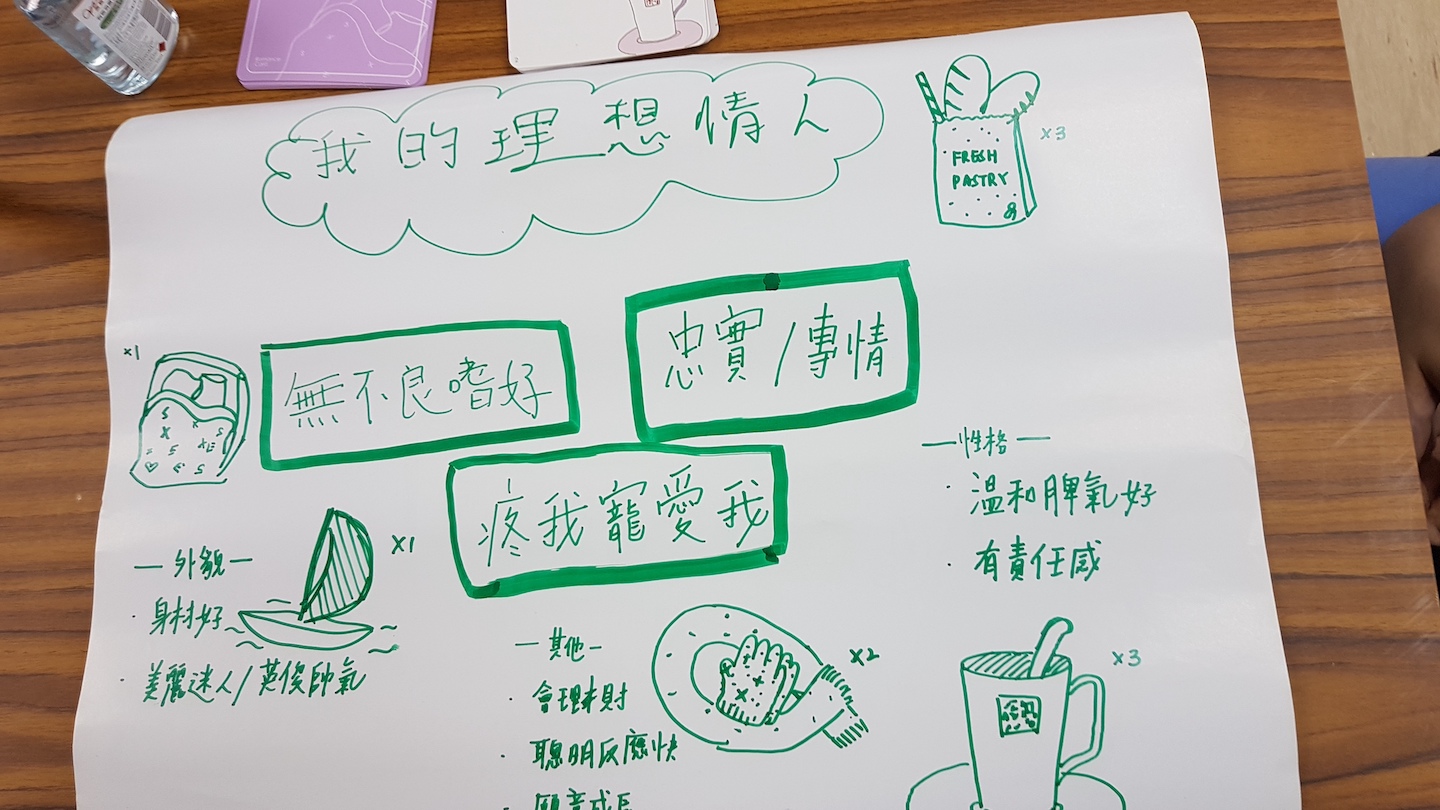 我的理想情人
FRESH
PASTRY
x3
忠實/專情
x1
無不良嗜好
疼我寵愛我
—性格—
· 溫和脾氣好
· 有責任感
x1
—外貌—
· 身材好
· 美麗迷人/英俊帥氣
—其他—
· 會理財
· 聰明反應快
· 願意成長
x2
x3